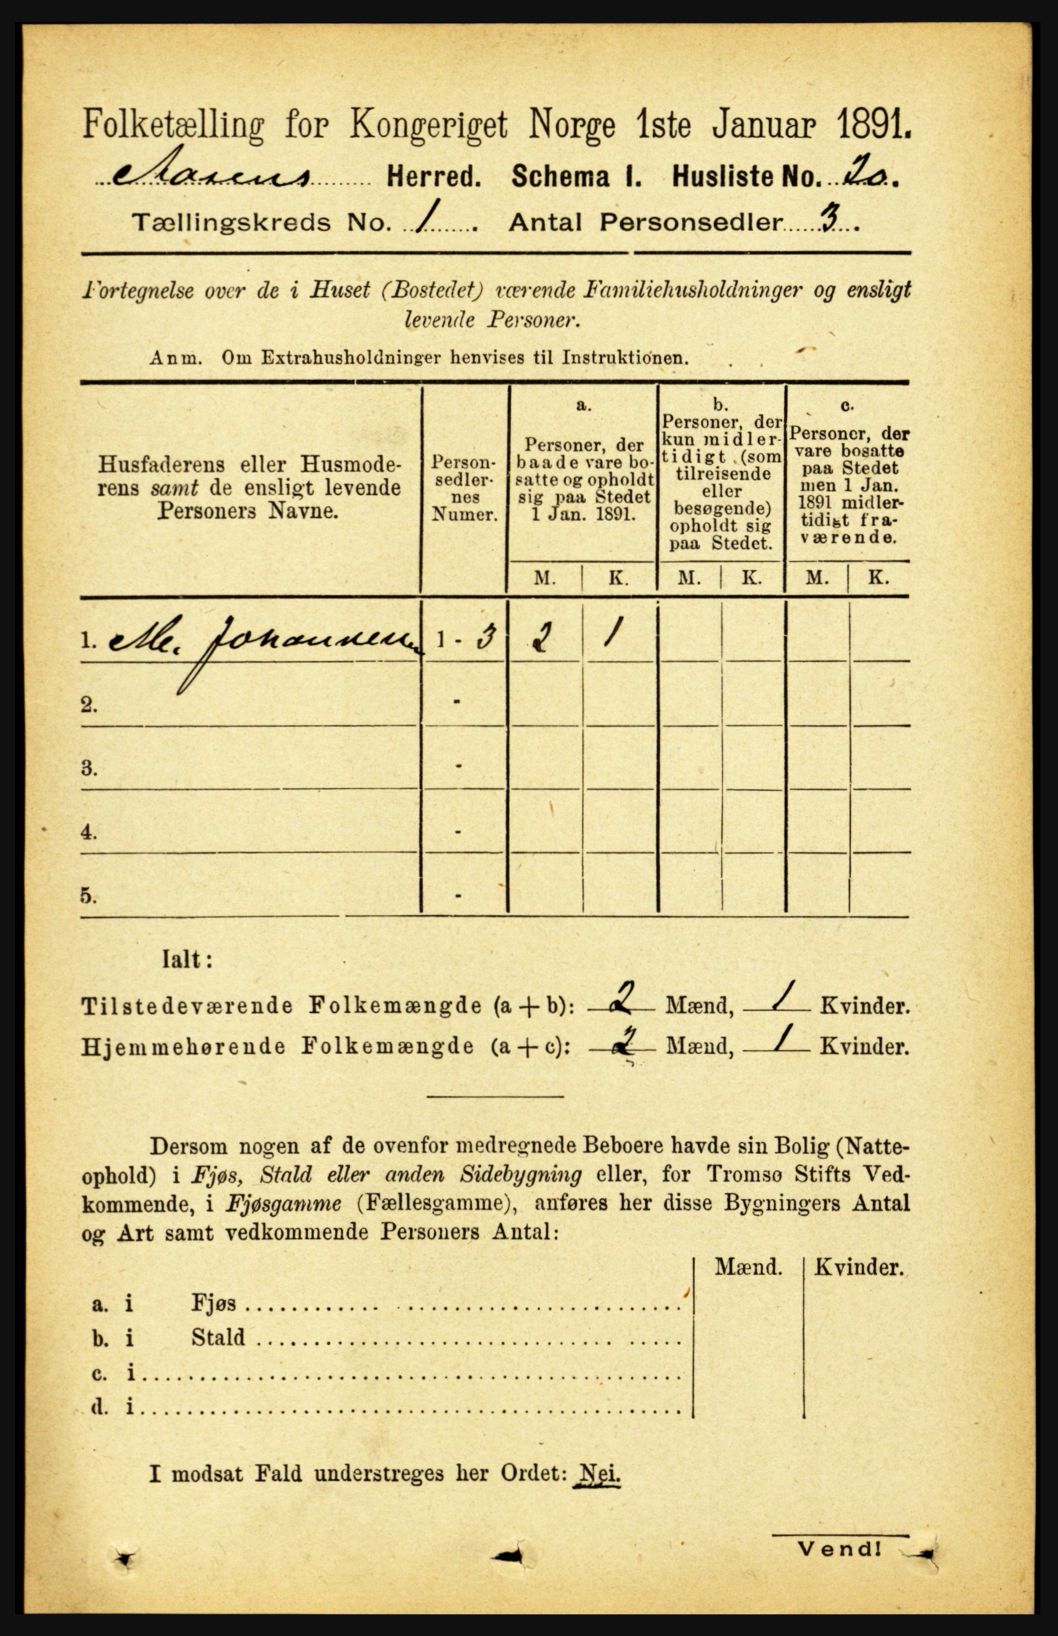 Folketælling for Kongeriget Norge 1ste Januar 1891.
Aasens Herred. Schema I. Husliste No. 20.
Tællingskreds No. 1. Antal Personsedler 3.
Fortegnelse over de i Huset (Bostedet) værende Familiehusholdninger og ensligt
levende Personer.
Anm. Om Extrahusholdninger henvises til Instruktionen.
Husfaderens eller Husmode-
rens samt de ensligt levende
Personers Navne.
Person-
sedler-
nes
Numer.
a.
Personer, der
baade vare bo-
satte og opholdt
sig paa Stedet
1 Jan. 1891.
b.
Personer, der
kun midler-
tidigt (som
tilreisende
eller
besøgende)
opholdt sig
paa Stedet.
c.
Personer, der
vare bosatte
paa Stedet
men 1 Jan.
1891 midler-
tidigt fra-
værende.
M. K. M. K. M. K.
1. M. Johannesen 1 - 3 2 1
2. -
3. -
4. -
5. -
Ialt:
Tilstedeværende Folkemængde (a + b): 2 Mænd, 1 Kvinder.
Hjemmehørende Folkemængde (a + c): 2 Mænd, 1 Kvinder.
Dersom nogen af de ovenfor medregnede Beboere havde sin Bolig (Natte-
ophold) i Fjøs, Stald eller anden Sidebygning eller, for Tromsø Stifts Ved-
kommende, i Fjøsgamme (Fællesgamme), anføres her disse Bygningers Antal
og Art samt vedkommende Personers Antal:
Mænd. Kvinder.
a. i Fjøs
b. i Stald
c. i
d. i
I modsat Fald understreges her Ordet: Nei.
Vend!